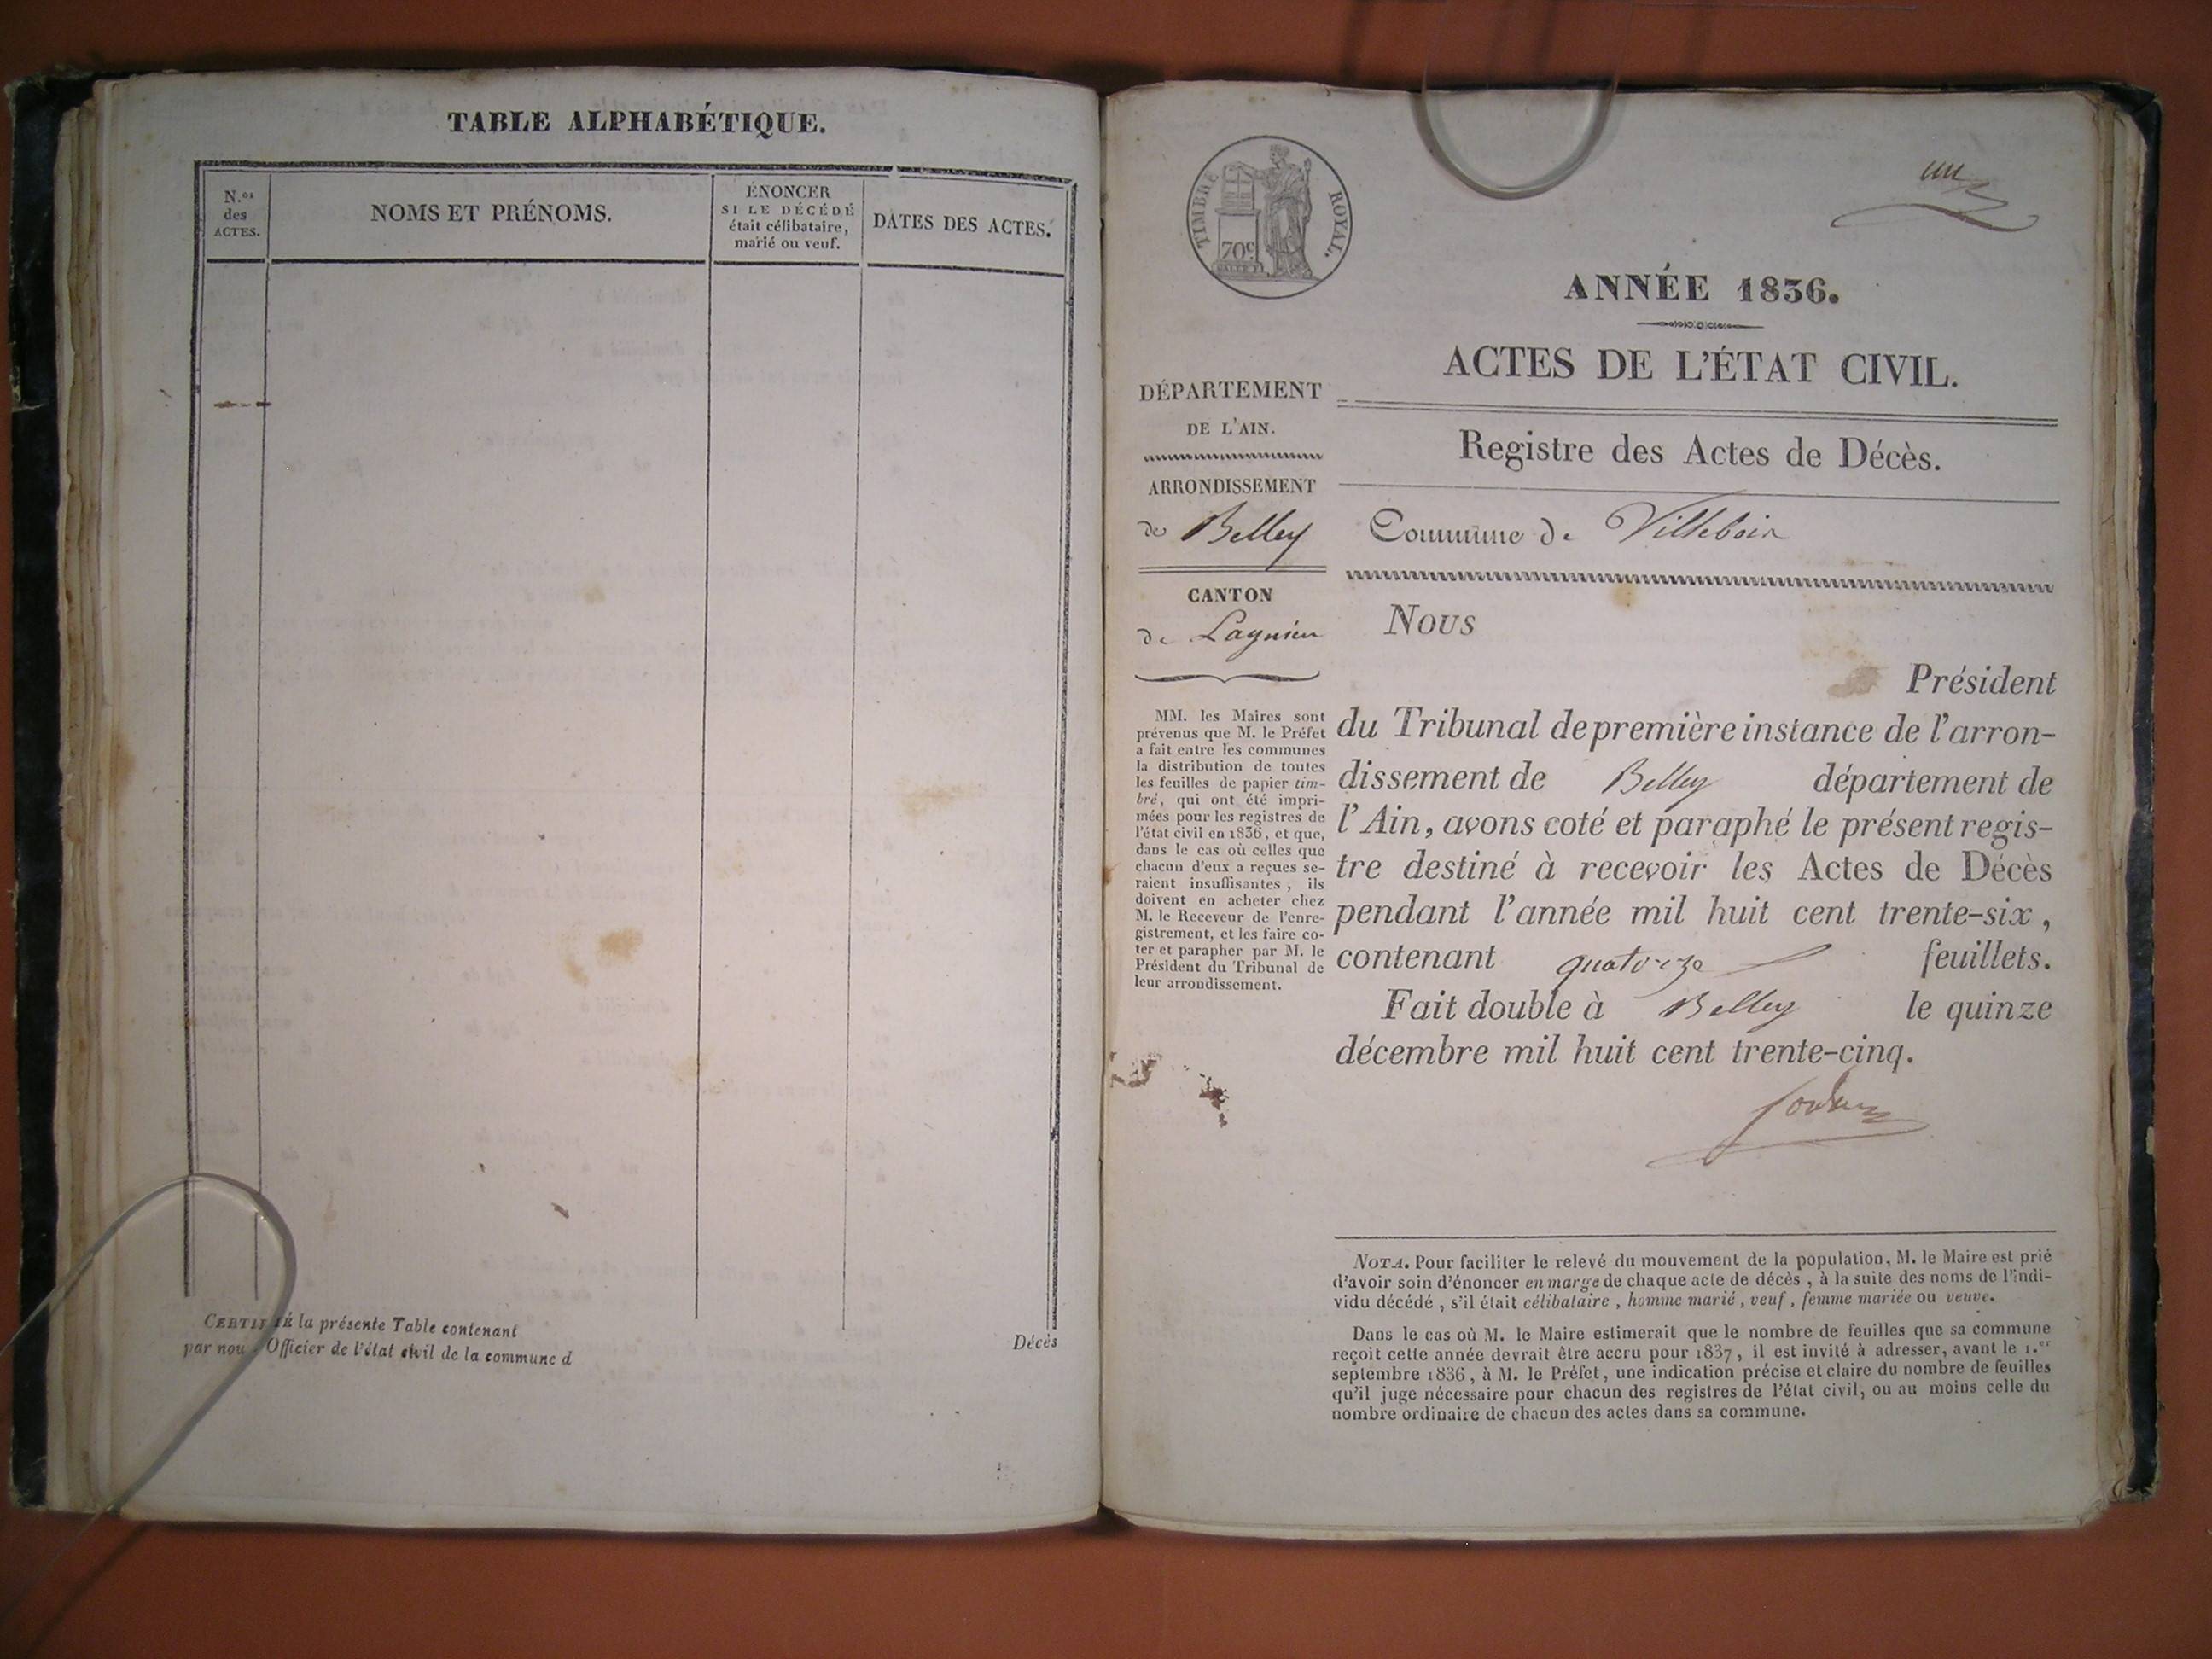 TABLE ALPHABÉTIQUE.
N.os
des
ACTES.
NOMS ET PRÉNOMS.
ÉNONCER
SI LE DÉCÉDÉ
était célibataire,
marié ou veuf.
DATES DES ACTES.
CERTIFIÉ la présente Table contenant Décès
par nou Officier de l'état civil de la commune d
TIMBRE ROYAL.
70c
un
ANNÉE 1836.
ACTES DE L'ÉTAT CIVIL.
DÉPARTEMENT
DE L'AIN.
ARRONDISSEMENT
de Belley
CANTON
de Lagnieu
MM. les Maires sont
prévenus que M. le Préfet
a fait entre les communes
la distribution de toutes
les feuilles de papier tim-
bré, qui ont été impri-
mées pour les registres de
l'état civil en 1836, et que,
dans le cas où celles que
chacun d'eux a reçues se-
raient insuffisantes, ils
doivent en acheter chez
M. le Receveur de l'enre-
gistrement, et les faire co-
ter et parapher par M. le
Président du Tribunal de
leur arrondissement.
Registre des Actes de Décès.
Commune de Villebois
Nous
Président
du Tribunal de première instance de l'arron-
dissement de Belley département de
l'Ain, avons coté et paraphé le présent regis-
tre destiné à recevoir les Actes de Décès
pendant l'année mil huit cent trente-six,
contenant quatorze feuillets.
Fait double à Belley le quinze
décembre mil huit cent trente-cinq.
NOTA. Pour faciliter le relevé du mouvement de la population, M. le Maire est prié
d'avoir soin d'énoncer en marge de chaque acte de décès, à la suite des noms de l'indi-
vidu décédé, s'il était célibataire, homme marié, veuf, femme mariée ou veuve.
Dans le cas où M. le Maire estimerait que le nombre de feuilles que sa commune
reçoit cette année devrait être accru pour 1837, il est invité à adresser, avant le 1.er
septembre 1836, à M. le Préfet, une indication précise et claire du nombre de feuilles
qu'il juge nécessaire pour chacun des registres de l'état civil, ou au moins celle du
nombre ordinaire de chacun des actes dans sa commune.